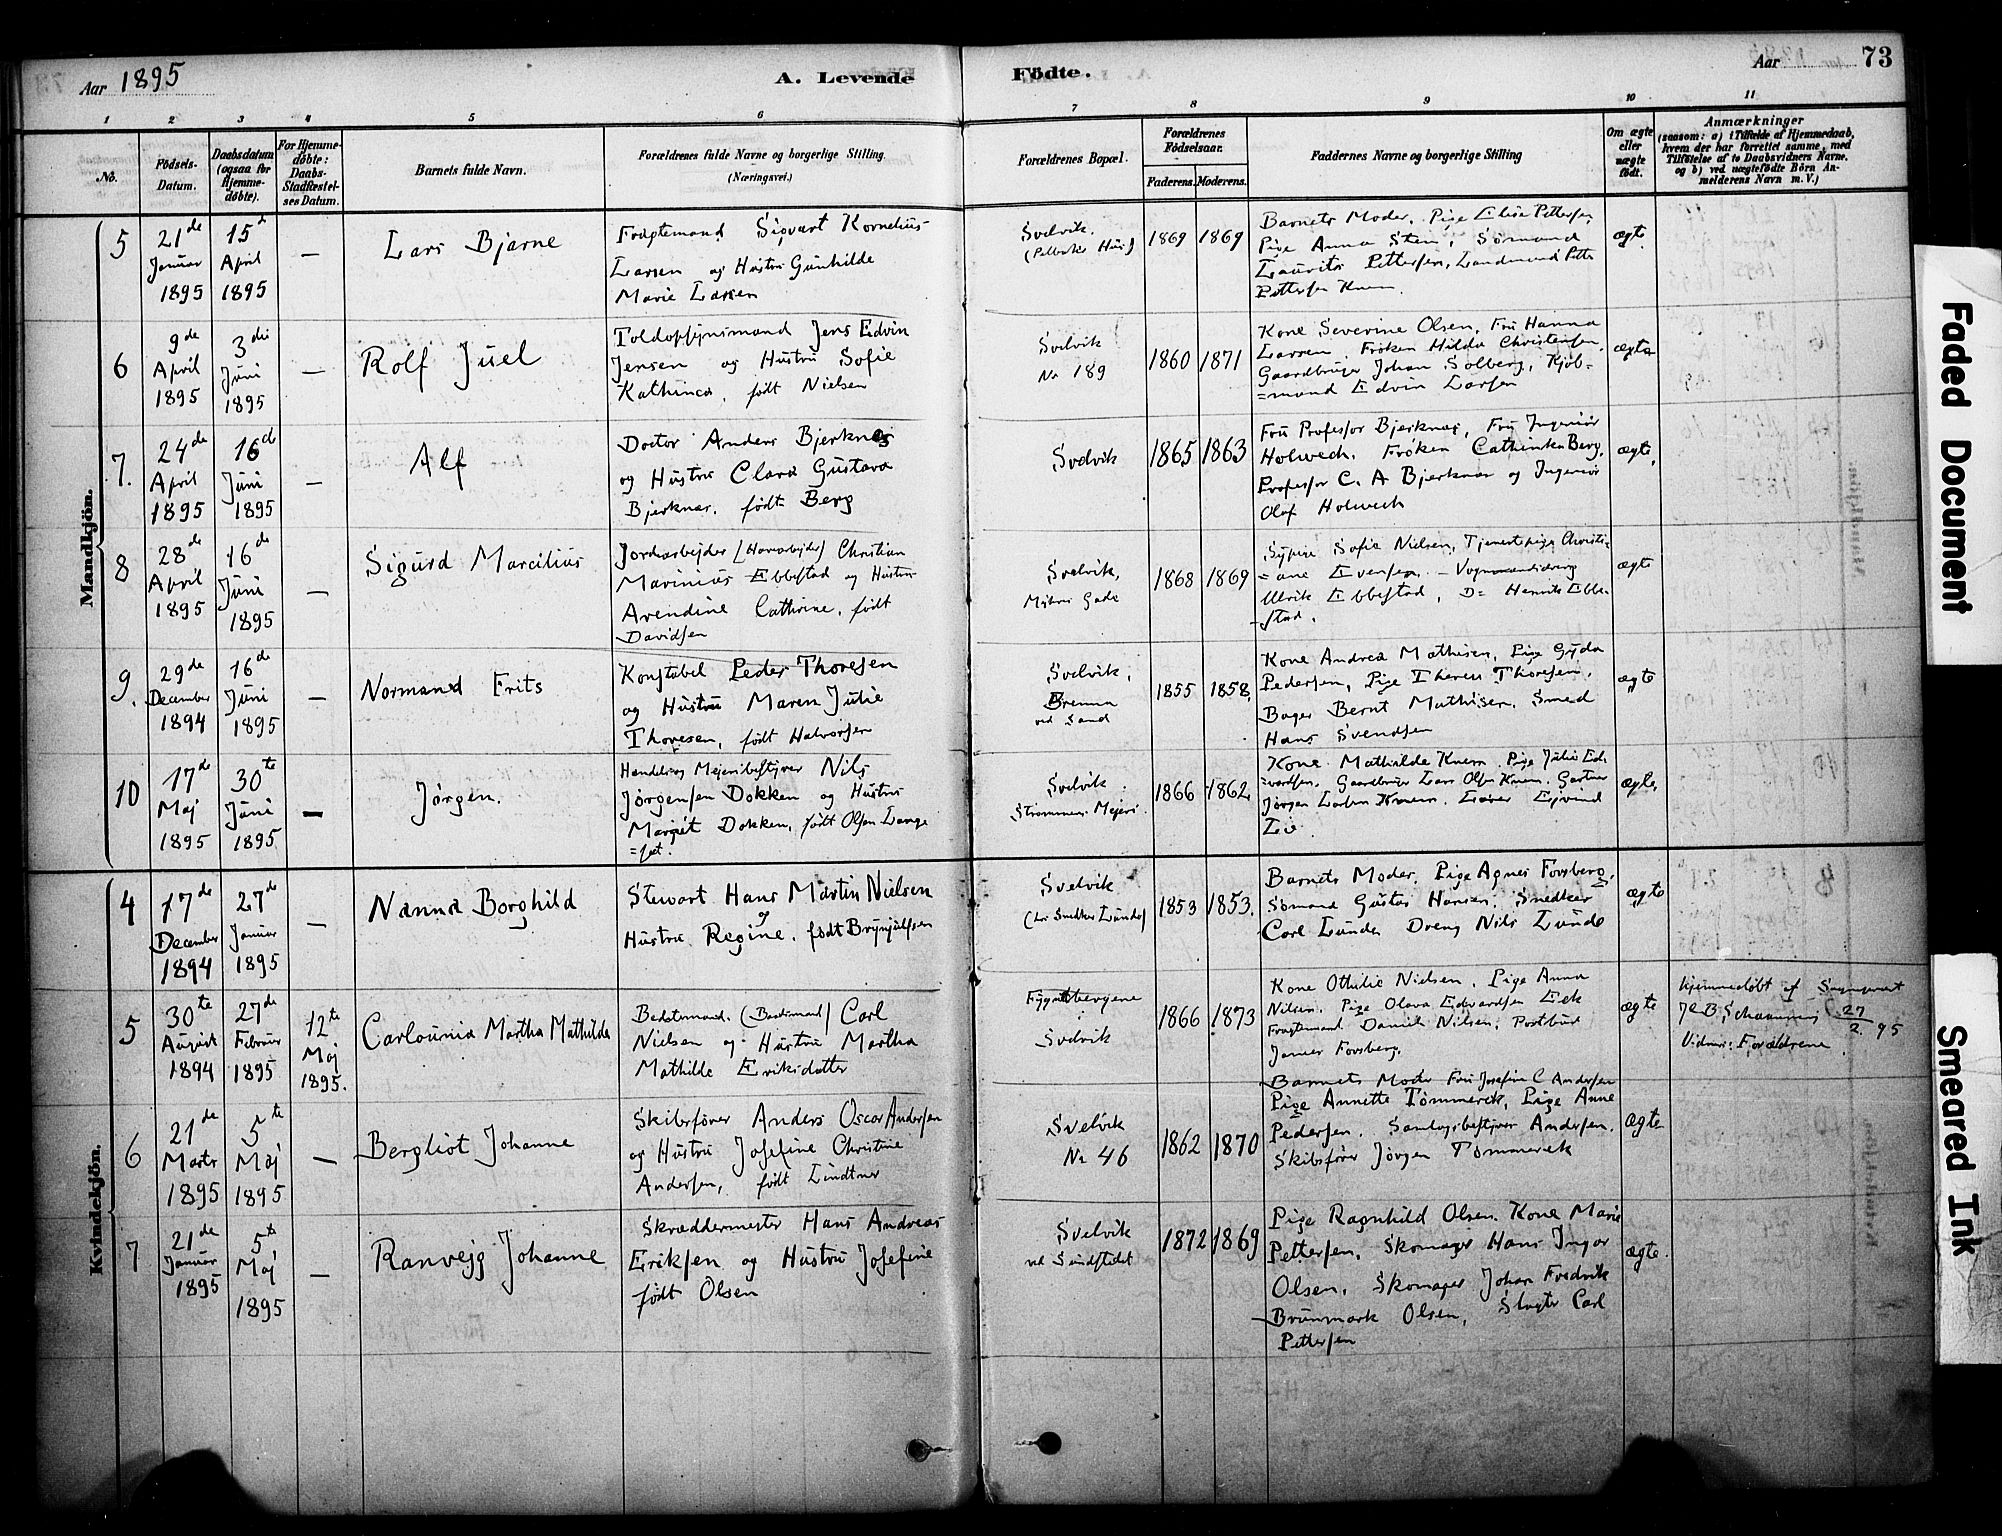 Aar 1895
A. Levende Födte.
Aar 73
1 2 3 4 5 6 7 8 9 10 11
No.
Födsels-Datum.
Daabsdatum (ogsaa for Hjemme-døbte).
For Hjemme-døbte: Daabs-Stadfæstel-ses Datum.
Barnets fulde Navn.
Forældrenes fulde Navne og borgerlige Stilling
(Næringsvei.)
Forældrenes Bopæl.
Forældrenes Fødselsaar.
Faderens. Moderens.
Faddernes Navne og borgerlige Stilling
Om ægte eller uægte født.
Anmærkninger
(saasom: a) i Tilfælde af Hjemmedaab, hvem der har forrettet samme, med Tilföielse af to Daabsvidners Navne. og b) ved uægtefødte Börn An-melderens Navn m. V.)
Mandkjön.
5
21de Januar 1895
15d April 1895
—
Lars Bjarne
Fragtemand Sigvart Kornelius
Larsen og Hustru Gunhilde
Marie Larsen
Svelvik.
1869 1869
Barnets Moder, Pige Elise Pettersen,
Pige Anna Steen, Sømand
Laurits Pettersen, Landmand
Pettersen Knem.
ægte
6
9de April 1895
3die Juni 1895
—
Rolf Juel
Toldopsynsmand Jens Edvin
Jensen og Hustru Sofie
Kathinca, født Nielsen
Svelvik
No 189
1860 1871
Kone Severine Olsen, Fru Hanna
Larsen, Frøken Hilda Christensen,
Gaardbruger Johan Solberg, Kjøb-
=mand Edvin Larsen
ægte
7.
24de April 1895
16de Juni 1895
—
Alf
Doctor Anders Bjerknes
og Hustru Clara Gustava
Bjerknes, født Berg
Svelvik
1865 1863
Fru Professor Bjerknes, Fru Ingeniør
Holwech, Frøken Cathinka Berg,
Professor C. A Bjerknes og Ingeniør
Olaf Holwech
ægte,
8
28de April 1895
16de Juni 1895
—
Sigurd Marcilius
Jordarbejder (Havearbejder) Christian
Marinius Ebbestad og Hustru
Arendine Cathrine, født
Davidsen
Svelvik,
Gade
1868 1869
Sypige Sofie Nielsen, Tjenestepige Christi=
=ane Evensen. —
Ulrik Ebbestad, D= Ebbe-
-stad.
ægte
9.
29de December 1894
16de Juni 1895
—
Normand Frits
Konstabel Peder Thoresen
og Hustru Maren Julie
Thoresen, født Halvorsen
Svelvik,
Brenna
ved Sand
1855 1858
Kone Andrea Mathisen, Pige Gyda
Pedersen, Pige Therese Thoresen,
Bager Bernt Mathisen, Smed
Hans Svendsen
ægte
10
17de Maj 1895
30te Juni 1895
—
Jørgen.
Handels og Mejeribestyrer Nils
Jørgensen Dokken og Hustru
Margit Dokken, født Olsen Lange
Svelvik.
Strømmens Mejeri
1866 1862
Kone Mathilde Knem, Pige Julie Ed-
=vardsen, Gaardbruger Lars Olsen Knem, Gartner
Jørgen Larsen Knem, Lærer Ejvind
Lie.
ægte,
Kvindekjön.
4
17de December 1894
27de Januar 1895
—
Nanna Borghild
Stewart Hans Martin Nielsen
og
Hustru Regine, født Brynjulfsen
Svelvik
(hos Snedker Lunde)
1853 1853.
Barnets Moder, Pige Agnes Forsberg,
Sømand Gustav Hansen, Snedker
Carl Lunde, Dreng Nils Lunde
ægte
5
30te August 1894
27de Februar 1895
12te Maj 1895.
Carlounia Martha Mathilde
Bedetsmand. (Baadsmand) Carl
Nielsen og Hustru Martha
Mathilde Eriksdatter
Svelvik
1866 1873
Kone Othilie Nielsen, Pige Anna
Nilsen, Pige Olava Edvardsen Eek
Fragtemand Daniel Nilsen, Postbud
Forsberg.
ægte
Hjemmedøbt af Sogneprest
27/2 95
Vidner: Forældrene.
6
21de Marts 1895
5te Maj 1895
—
Bergliot Johanne
Skibsfører Anders Oscar Andersen
og Hustru Josefine Christine
Andersen, født Lindtner
Svelvik
No 46
1862 1870
Barnets Moder Fru Josefine C Andersen
Pige Annette Tømmerek, Pige Anne
Pedersen. Samlagsbestyrer Andersen,
Skibsfører Jørgen Tømmerek
ægte
7
21de Januar 1895
5te Maj 1895
—
Ranvejg Johanne
Skræddermester Hans Andreas
Eriksen og Hustru Josefine
født Olsen
Svelvik
ved Sundstedet
1872 1869
Pige Ragnhild Olsen. Kone Marie
Pettersen, Skomager Hans Ingar
Olsen, Skomager Johan Fredrik
Brunmark Olsen, Slagter Carl
Pettersen
ægte.
Faded Document
Smeared Ink